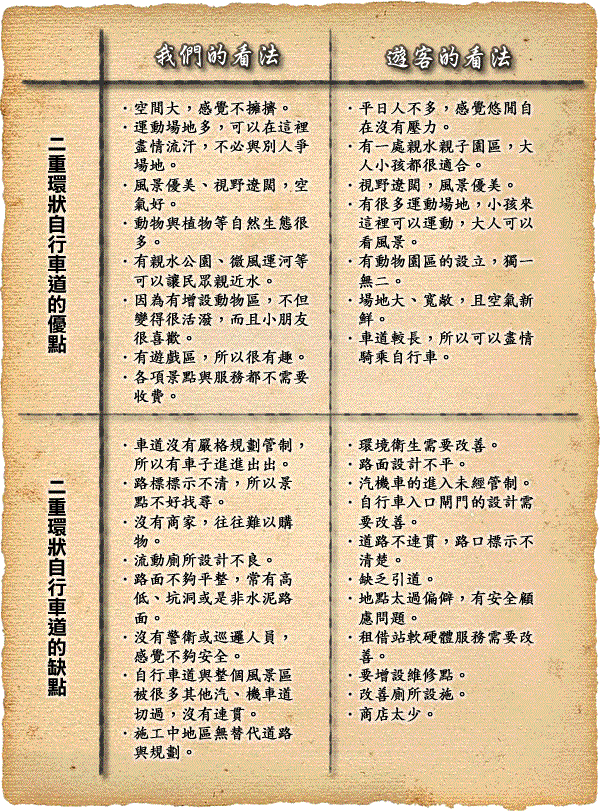 我們的看法
遊客的看法
二重環狀自行車道的優點
．空間大，感覺不擁擠。
．運動場地多，可以在這裡
盡情流汗，不必與別人爭
場地。
．風景優美、視野遼闊，空
氣好。
．動物與植物等自然生態很
多。
．有親水公園、微風運河等
可以讓民眾親近水。
．因為有增設動物區，不但
變得很活潑，而且小朋友
很喜歡。
．有遊戲區，所以很有趣。
．各項景點與服務都不需要
收費。
．平日人不多，感覺悠閒自
在沒有壓力。
．有一處親水親子園區，大
人小孩都很適合。
．視野遼闊，風景優美。
．有很多運動場地，小孩來
這裡可以運動，大人可以
看風景。
．有動物園區的設立，獨一
無二。
．場地大、寬敞，且空氣新
鮮。
．車道較長，所以可以盡情
騎乘自行車。
二重環狀自行車道的缺點
．車道沒有嚴格規劃管制，
所以有車子進進出出。
．路標標示不清，所以景
點不好找尋。
．沒有商家，往往難以購
物。
．流動廁所設計不良。
．路面不夠平整，常有高
低、坑洞或是非水泥路
面。
．沒有警衛或巡邏人員，
感覺不夠安全。
．自行車道與整個風景區
被很多其他汽、機車道
切過，沒有連貫。
．施工中地區無替代道路
與規劃。
．環境衛生需要改善。
．路面設計不平。
．汽機車的進入未經管制。
．自行車入口閘門的設計需
要改善。
．道路不連貫，路口標示不
清楚。
．缺乏引道。
．地點太過偏僻，有安全顧
慮問題。
．租借站軟硬體服務需要改
善。
．要增設維修點。
．改善廁所設施。
．商店太少。